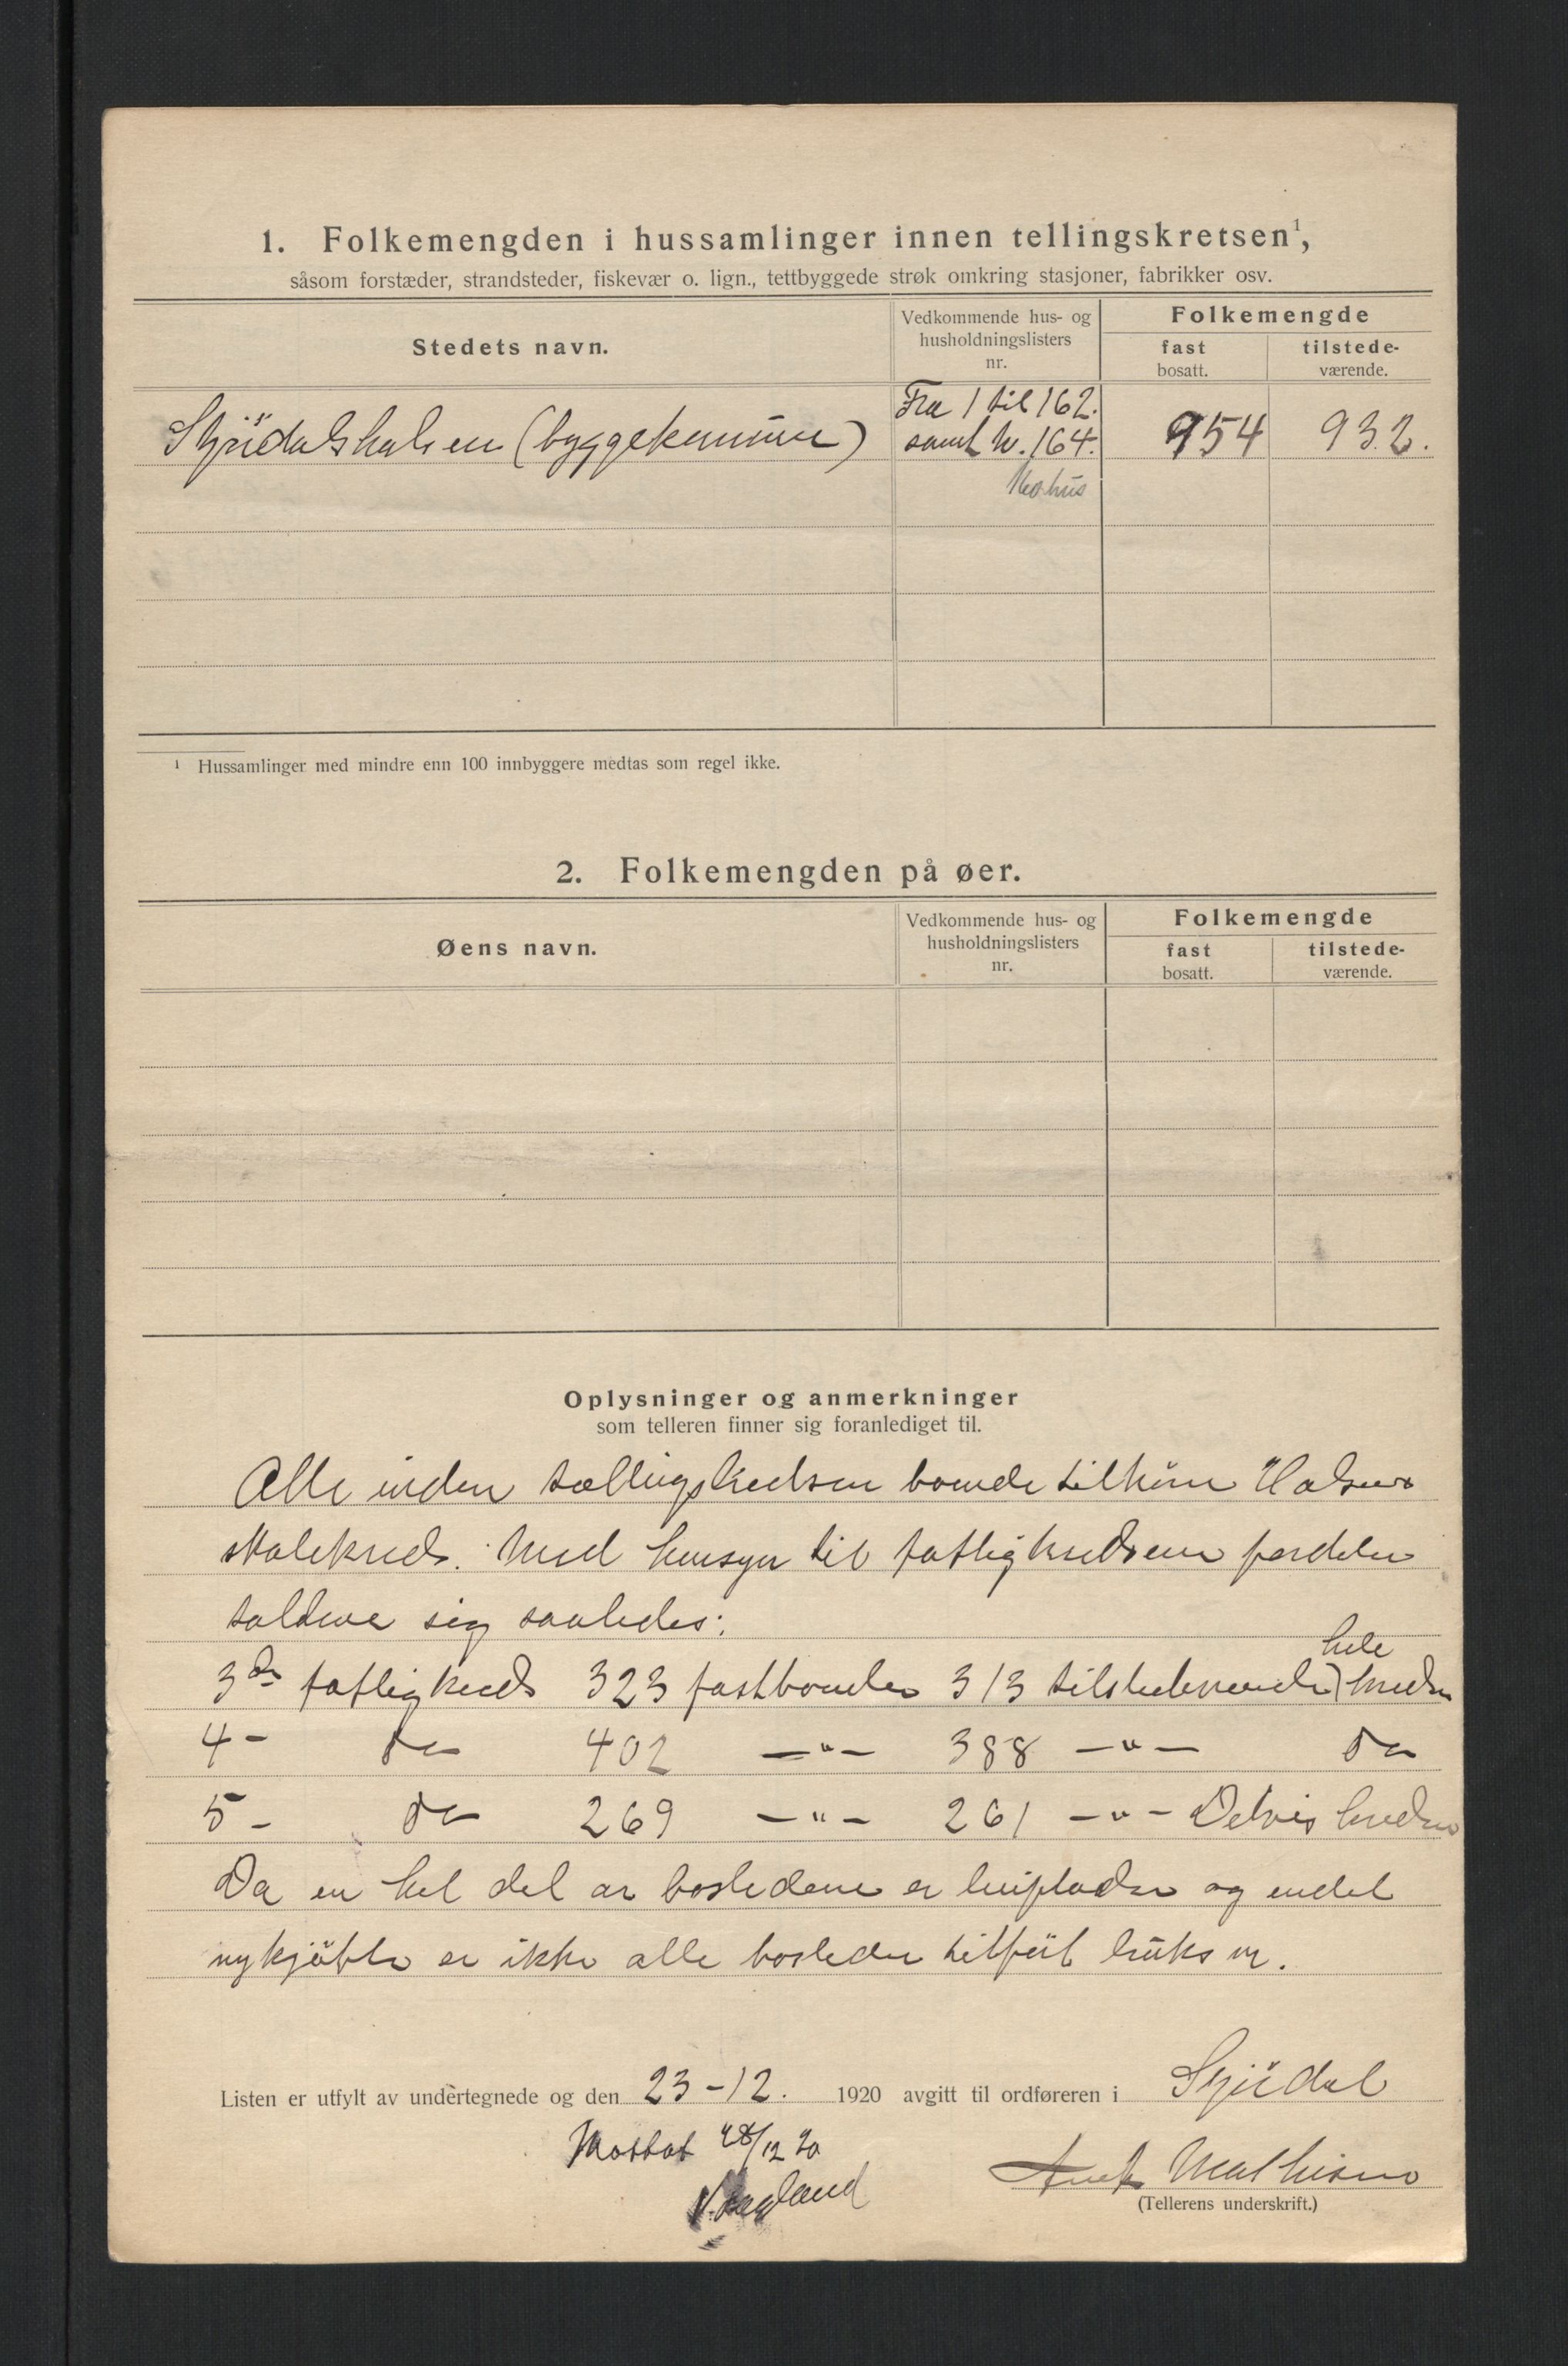 1. Folkemengden i hussamlinger innen tellingskretsen¹,
såsom forstæder, strandsteder, fiskevær o. lign., tettbyggede strøk omkring stasjoner, fabrikker osv.
Stedets navn.
Vedkommende hus- og
husholdningslisters
nr.
Folkemengde
fast
bosatt.
tilstede-
værende.
Stjördalshalsen (byggekommune)
Fra 1 til 162.
samt nr. 164.
954
932.
hus
¹ Hussamlinger med mindre enn 100 innbyggere medtas som regel ikke.
2. Folkemengden på øer.
Øens navn.
Vedkommende hus- og
husholdningslisters
nr.
Folkemengde
fast
bosatt.
tilstede-
værende.
Oplysninger og anmerkninger
som telleren finner sig foranlediget til.
Alle inden tællingskredsen boende tilhörer Halsens
skolekreds. Med hensyn til fattigkredsene fordeler
tallene sig saaledes:
hele
3de fattigkreds 323 fastboende 313 tilstedeværende) kredsen
4 - do 402 — " — 388 — " — do
5 - do 269 — " — 261 — " — Delvis kredsen
Da en hel del av bostedene er leiepladser og endel
nykjöbte er ikke alle bosteder tilföiet bruks nr.
Listen er utfylt av undertegnede og den 23-12. 1920 avgitt til ordføreren i Stjördal
Mottat 28/12 20
Mathisen
(Tellerens underskrift.)